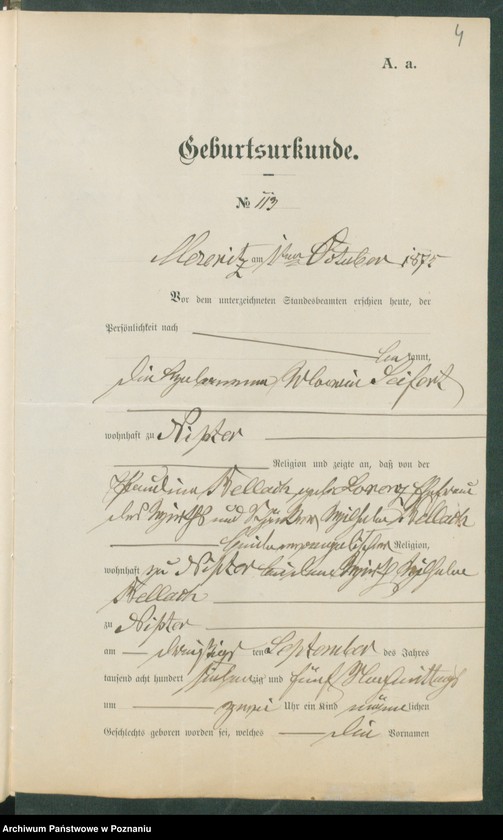 4
A. a.
Geburtsurkunde.
№ 113
Meseritz am 1ten October 1875
Vor dem unterzeichneten Standesbeamten erschien heute, der
Persönlichkeit nach
bekannt,
die Hebamme Seifert
wohnhaft zu Nipter
Religion und zeigte an, daß von der
Pauline Kellach geb Lorenz Ehefrau
des Wirths und Wilhelm Kellach
beide evangelischer Religion,
wohnhaft zu Nipter Wirth Wilhelm
Kellach
zu Nipter
am dreißigsten September des Jahres
tausend acht hundert siebenzig und fünf Nachmittags
um zwei Uhr ein Kind männlichen
Geschlechts geboren worden sei, welches die Vornamen
Archiwum Państwowe w Poznaniu